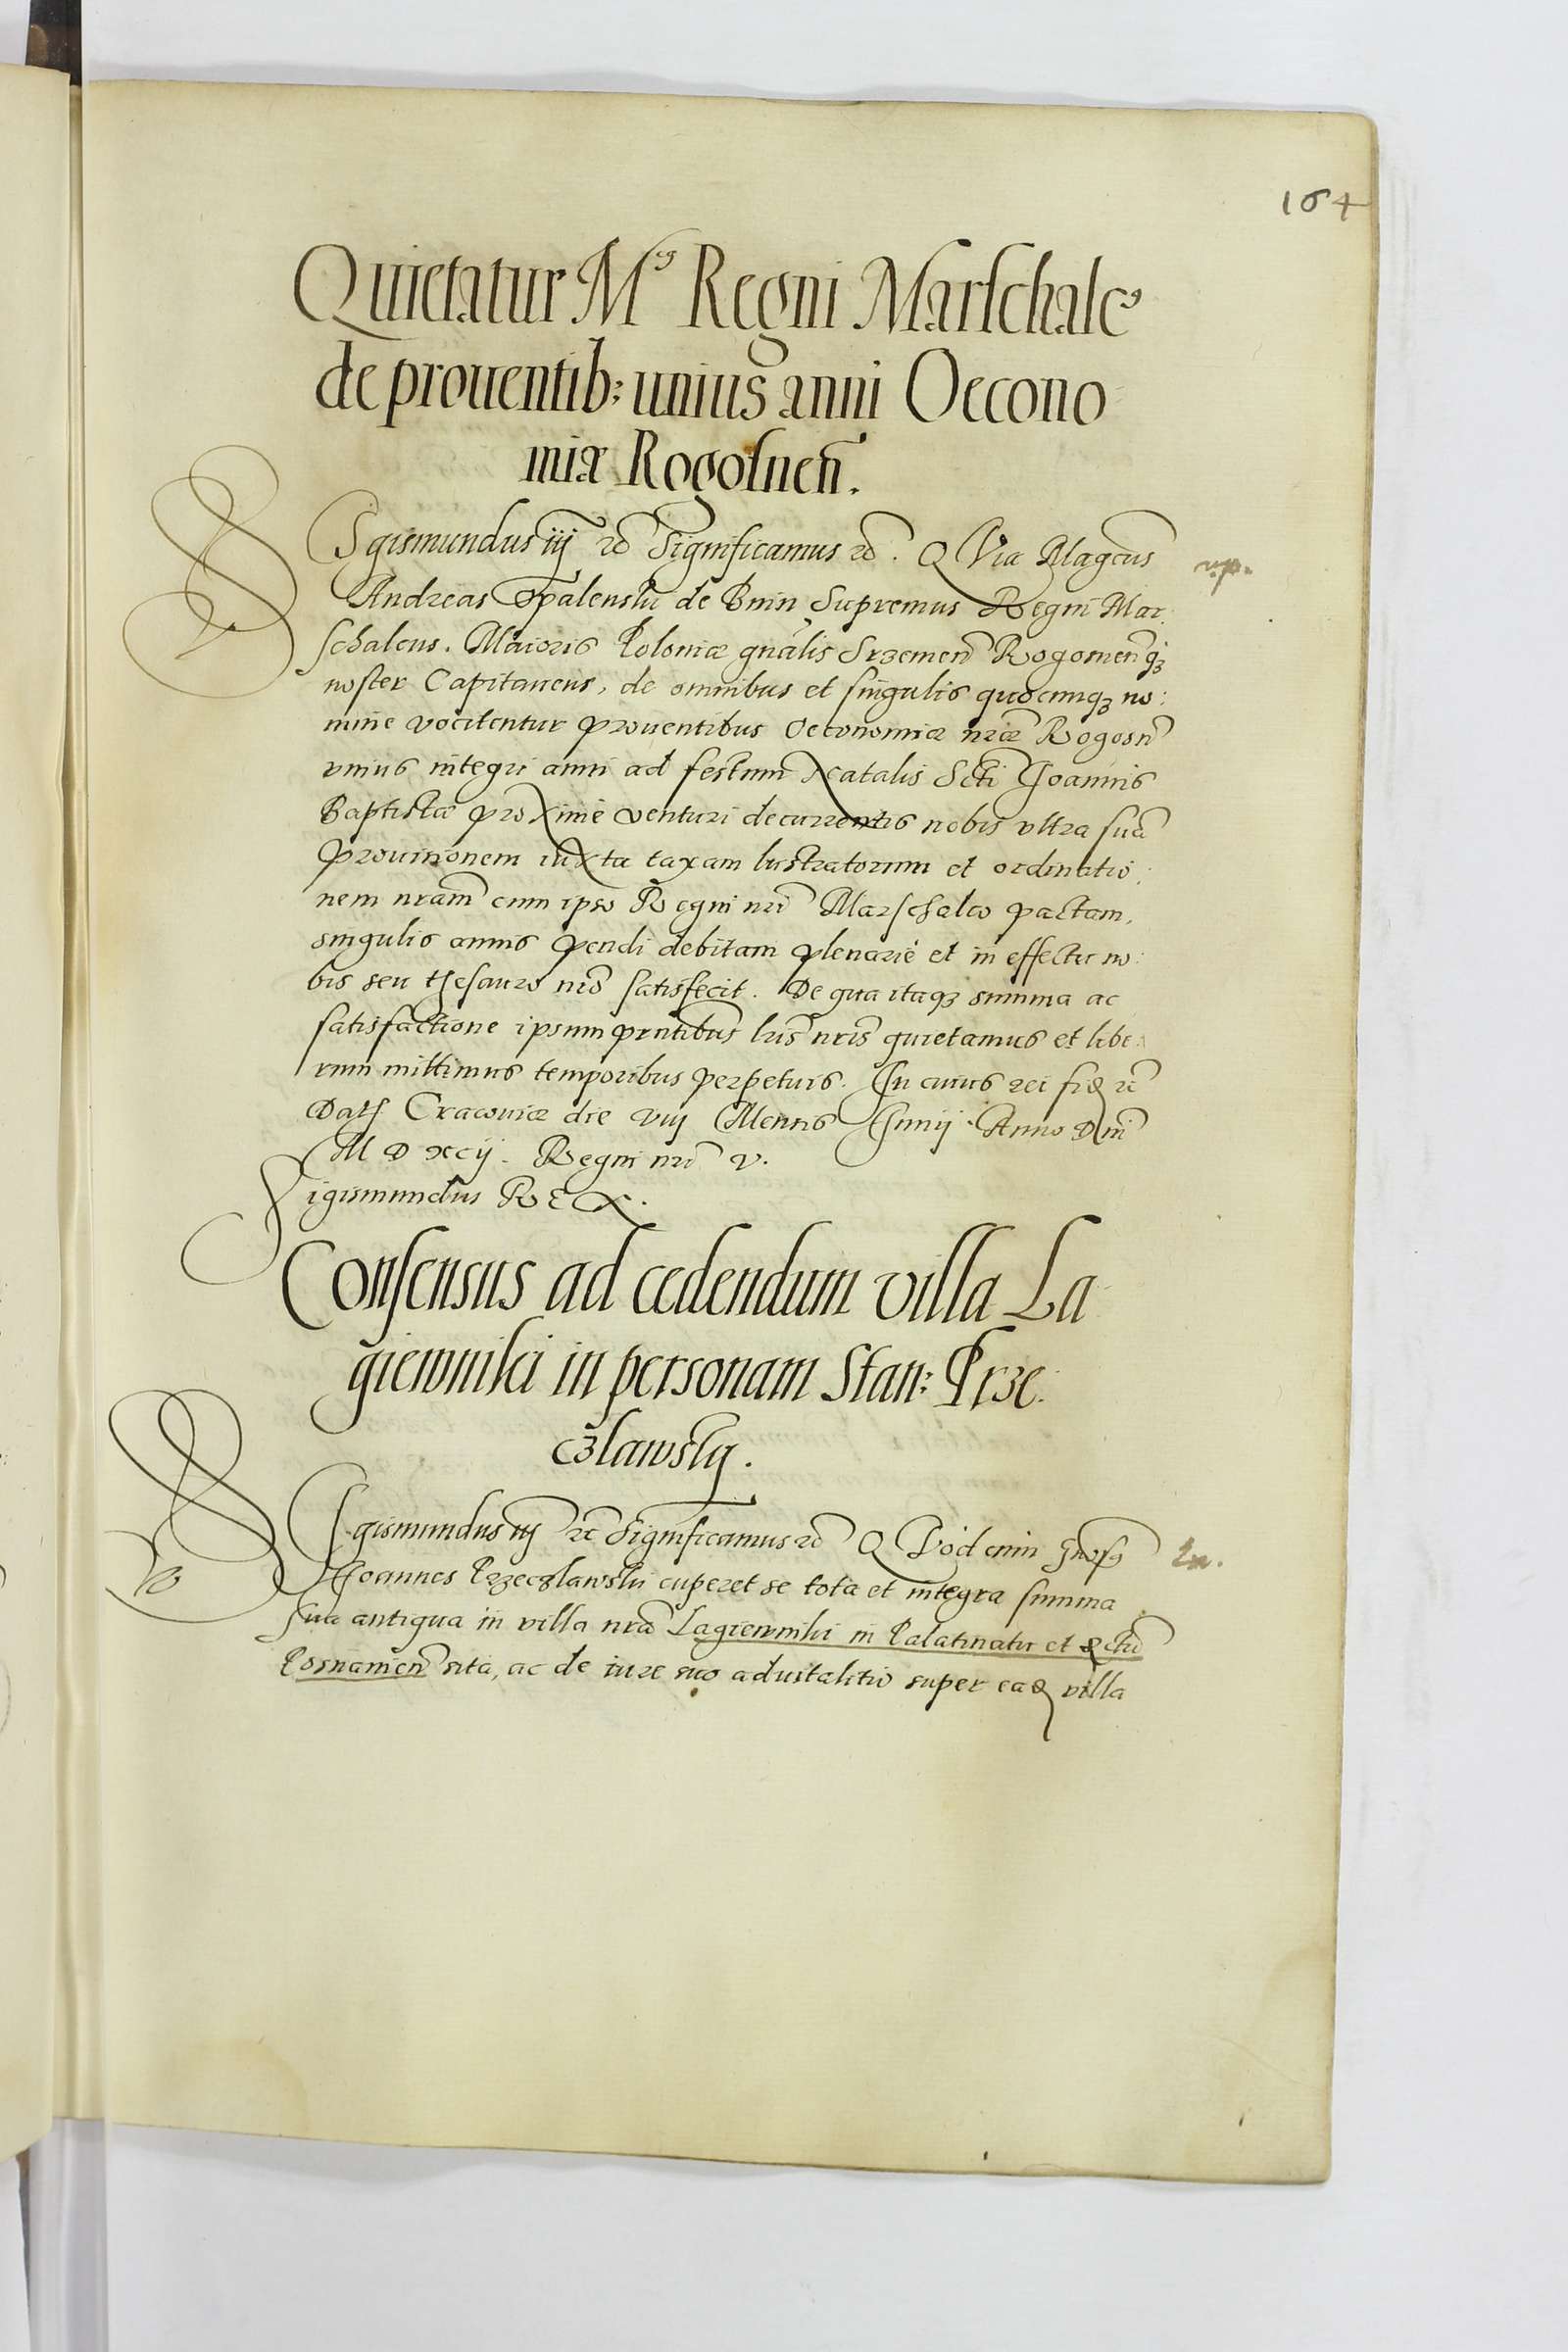 164
Quietatur Mꝰ Regni Marschalcꝰ
de prouentib: unius anni Oecono
miæ Rogosneñ.
Sigismundus iij ꝛc̃ Significamus ꝛc̃. Quia Magcus
Andreas Opalenski de Bnin Supremus Regni Mar
schalcus. Maioris Poloniæ gnãlis Srzemeñ Rogosneñqꝫ
noster Capitaneus, de omnibus et singulis quocunqꝫ no:
mine vocitentur prouentibus Oeconomiæ nræ̃ Rogosñ
vnius integri anni ad festum Natalis Scti Joannis
Baptistæ proxime venturi decurrentis nobis vltra suã
prouisionem iuxta taxam lustratorum et ordinatio:
nem nram̃ cum ipso Regni nri Marschalco pactam,
singulis annis pendi debitam plenariè et in effectu no:
bis seu thesauro nrõ satisfecit. De qua itaqꝫ summa ac
satisfactione ipsum pnti̅bus lris̃ nris̃ quietamus et libe:
rum mittimus temporibus perpetuis. In cuius rei fidꝫ ꝛc̃
Datꝫ Cracouiæ die vij Mensis Junij Anno Dni
M D xcij. Regni nri v.
Sigismundus REX.
Consensus ad cedendum villa La
giewniki in personam Stan: Prze:
czlawsky.
Sigismundus iij ꝛc̃ Significamus ꝛc̃ Quod cum Gnosꝰ
Joannes Przeczlawski cuperet se tota et integra summa
sua antiqua in villa nrã Lagiewniki in Palatinatu et dctũ
Posnanieñ sita, ac de iure suo aduitalitio super eadꝫ villa